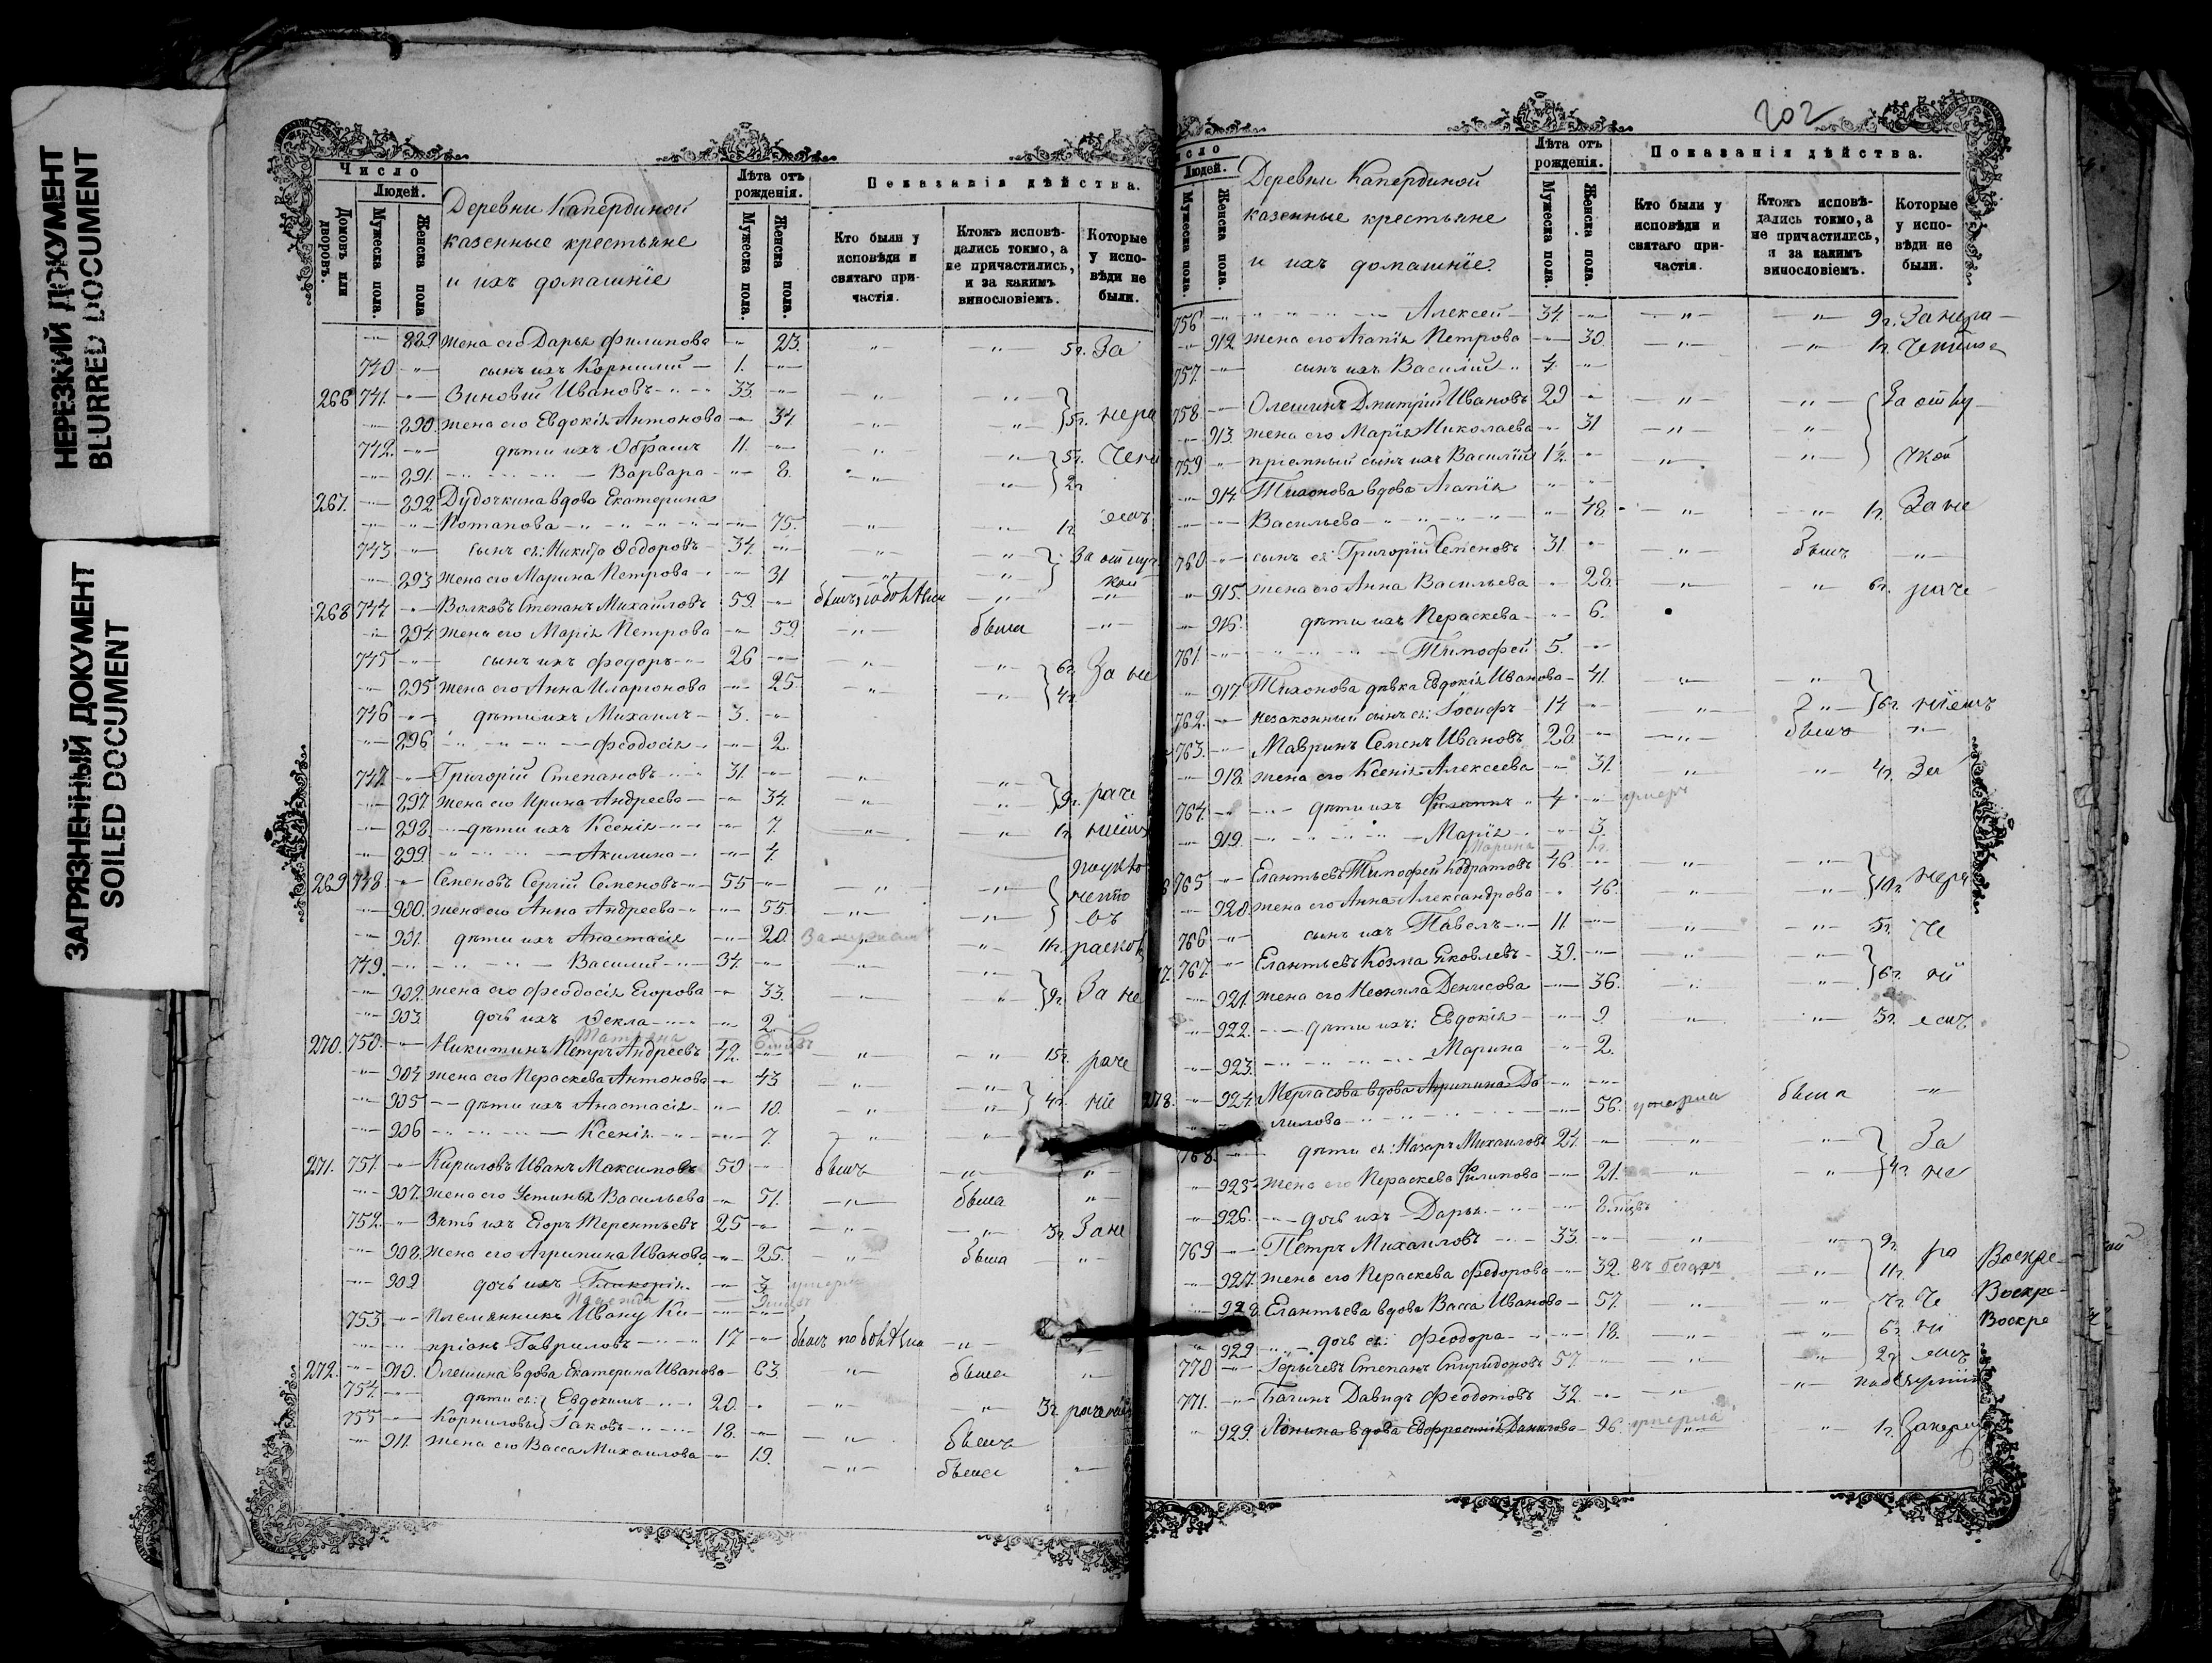 НЕРЕЗКИЙ ДОКУМЕНТ
BLURRED DOCUMENT
ЗАГРЯЗНЕННЫЙ ДОКУМЕНТ
SOILED DOCUMENT
Число
Людей.
Домовъ или дворовъ.
Мужеска пола.
Женска пола
Деревни Капердиной
казенные крестьяне
и ихъ домашніе
Лѣта отъ рожденія.
Мужеска пола.
Женска пола.
Показанія дѣйства.
Кто были у исповѣди и святаго причастія.
Ктожъ исповѣдались токмо, а не причастились, и за какимъ винословіемъ.
Которые у исповѣди не были.
889 жена его Дарья Филипова 23. 5 г. За
740 сынъ ихъ Корнилий 1.
266 741. Зиновий Ивановъ 33.
890. жена его Евдокія Антонова 34 5 г. нера
742. дѣти ихъ Абрамъ 11. 5 г.
891. Варвара 8. 2 г
267. 892 Дудочкина вдова Екатерина
Потапова 75. 1 г.
743 сынъ ея: Никита Ѳедоровъ 34. За отлуч
893 жена его Марина Петрова 31 кой
268 744 Волковъ Степанъ Михайловъ 59. былъ по болѣзни
894. жена его Марія Петрова 59. была
745 сынъ ихъ Федоръ 26 6 г. За не
895 жена его Анна Иларіонова 25 4 г.
746 дѣти ихъ Михаилъ 3.
896 Феодосія 2.
747. Григорій Степановъ 31.
897. жена его Ирина Андреева 34. 9 г. раче
898. дѣти ихъ Ксенія 7. 1 г. ніемъ
899 Акилина 4.
269 748. Семеновъ Сергій Семеновъ 55
900. жена его Анна Андреева 55.
901. дѣти ихъ Анастасія 20. За мужемъ 11 г. раскол
749. Василий 34.
902. жена его Феодосія Егорова 33. 9 г. За не
903. дочь ихъ Ѳекла 2.
270. 750. Никитинъ Петръ Андреевъ 42. 15 г. раче
904 жена его Параскева Антонова 43
905 дѣти ихъ Анастасія 10. 4 г. ніе
906 Ксенія 7.
271. 751. Кириловъ Иванъ Максимовъ 50 былъ
907. жена его Устинья Васильева 51. была
752. Зять ихъ Егоръ Терентьевъ 25 3 г. За не
908. жена его Агрипина Иванова 25. была
909 дочь ихъ Гликерія 3. умерла
Надежда
753 племянникъ Ивану Ки
пріанъ Гавриловъ 17 былъ по болѣзни
272. 910. Олешина вдова Екатерина Иванова 63. была
754. дѣти ея: Евдокимъ 20. 3 г. раченіемъ
755 Корниловы Іаковъ 18. былъ
911. жена его Васса Михаилова 19. была
202
Число
Людей.
Мужеска пола.
Женска пола.
Деревни Капердиной
казенные крестьяне
и ихъ домашніе.
Лѣта отъ рожденія.
Мужеска пола.
Женска пола.
Показанія дѣйства.
Кто были у исповѣди и святаго причастія.
Ктожъ исповѣдались токмо, а не причастились, и за какимъ винословіемъ.
Которые у исповѣди не были.
756 Алексей 34. 9 г. За нера
912 жена его Агапія Петрова 30. 1 г. ченіемъ
757. сынъ ихъ Василий 7.
758. Олешинъ Дмитрій Ивановъ 29 За отлу
913. жена его Марія Николаева 31
759 пріемный сынъ ихъ Василій 14. чкой
914. Тихонова вдова Агапія
Васильева 48. 1 г. За не
760 сынъ ея: Григорій Семеновъ 31. былъ
915. жена его Анна Васильева 28. 6 г. раче
916. дѣти ихъ Параскева 6.
761. Тимофей 5.
917. Тихонова дѣвка Евдокія Иванова 41.
762. незаконный сынъ ея: Іосифъ 14 6 г. ніемъ
763. Мавринъ Семенъ Ивановъ 28 былъ
918. жена его Ксенія Алексеева 31. 4 г. За
764. дѣти ихъ Филиппъ 4 умеръ
919. Марія 3.
Марина
765 Елантьевъ Тимофей Кодратовъ 46.
920. жена его Анна Александрова 46. 10 г. нера
766 сынъ ихъ Павелъ 11. 5 г. че
767. Елантьевъ Козма Яковлевъ 39.
921. жена его Неонила Денисова 36. 6 г. ні
922. дѣти ихъ: Евдокія 9. 5 г. емъ
923. Марина 2.
278. 924. Мергасова вдова Агрипина Да
нилова 56. умерла была
768. дѣти ея: Назаръ Михаиловъ 24. За
925. жена его Параскева Филипова 21. 4 г. не
926. дочь ихъ Дарья
769 Петръ Михаиловъ 33. 9 г. ра
927. жена его Параскева Федорова 32. въ бегахъ 11 г. Воскре
928. Елантьева вдова Васса Иванова 57. 7 г. че Воскре
929 дочь ея: Феодора 18. 6 г. ні Воскре
770 Горычевъ Степанъ Спиридоновъ 57. 2 г. емъ
771. Багинъ Давидъ Феодотовъ 32.
929. Лонина вдова Евфросинія Данилова 96. умерла 1 г. За нера